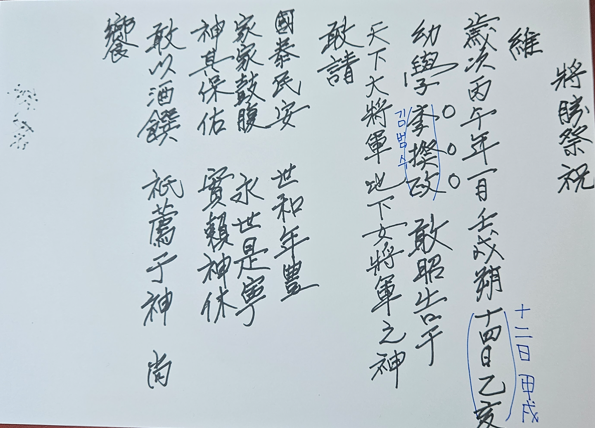 將勝祭祝
維
歲次丙午年一月壬戌朔十四日乙亥
十二日 甲戌
幼學 李揆政 敢昭告于
김범수
天下大將軍地下女將軍之神
敢請
國泰民安 世和年豊
家家鼓腹 永世是寧
神其保佑 實賴神休
敢以酒饌 祗薦于神 尚
饗